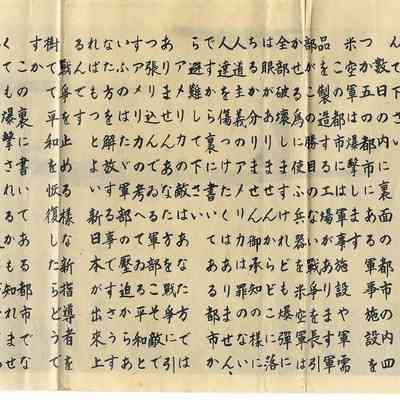 数日の内に裏面の都市の内四
つか五つの都市にある軍事施設を
米空軍は爆撃します
この都市には軍事施設や軍需
品を製造する工場があります軍
部がこの勝目のない戦争を長引
かせる為に使ふ兵器を米空軍は
全部破壊しますけれども爆弾に
は眼がありませんからどこに落
ちるか分りません御承知の様に
人道主義のアメリカは罪のない
人達を傷つけたくはありません
ですから裏に書いてある都市か
ら避難して下さい
アメリカの敵はあなた方では
ありませんあなた方を戦争に引
つ張り込んでゐる軍部こそ敵で
すアメリカの考へてゐる平和と
いふのはたゞ軍部の壓迫からあ
なた方を解放する事ですさうす
ればもつとよい新日本が出來上
るんです
戦争を止める様な新指導者を
樹てて平和を恢復したらどうで
すか
この裏に書いてある都市でな
くても爆撃されるかも知れませ